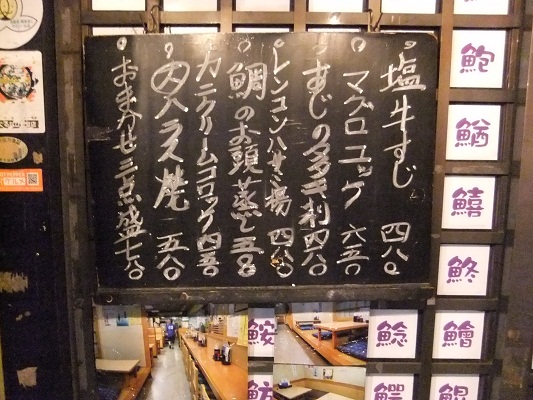 塩牛すじ 四八〇
マグロユッケ 六五〇
すじの多き利 四八〇
レンコンハサミ揚 四八〇
鯛のお頭蒸し 五〇
カニクリームコロッケ 四五〇
内ハラス焼 五八〇
おまかせ三点盛 七八〇
鮑
鰌
鱚
鮗
鱠
鯰
鮟
鰐
鯤
魴